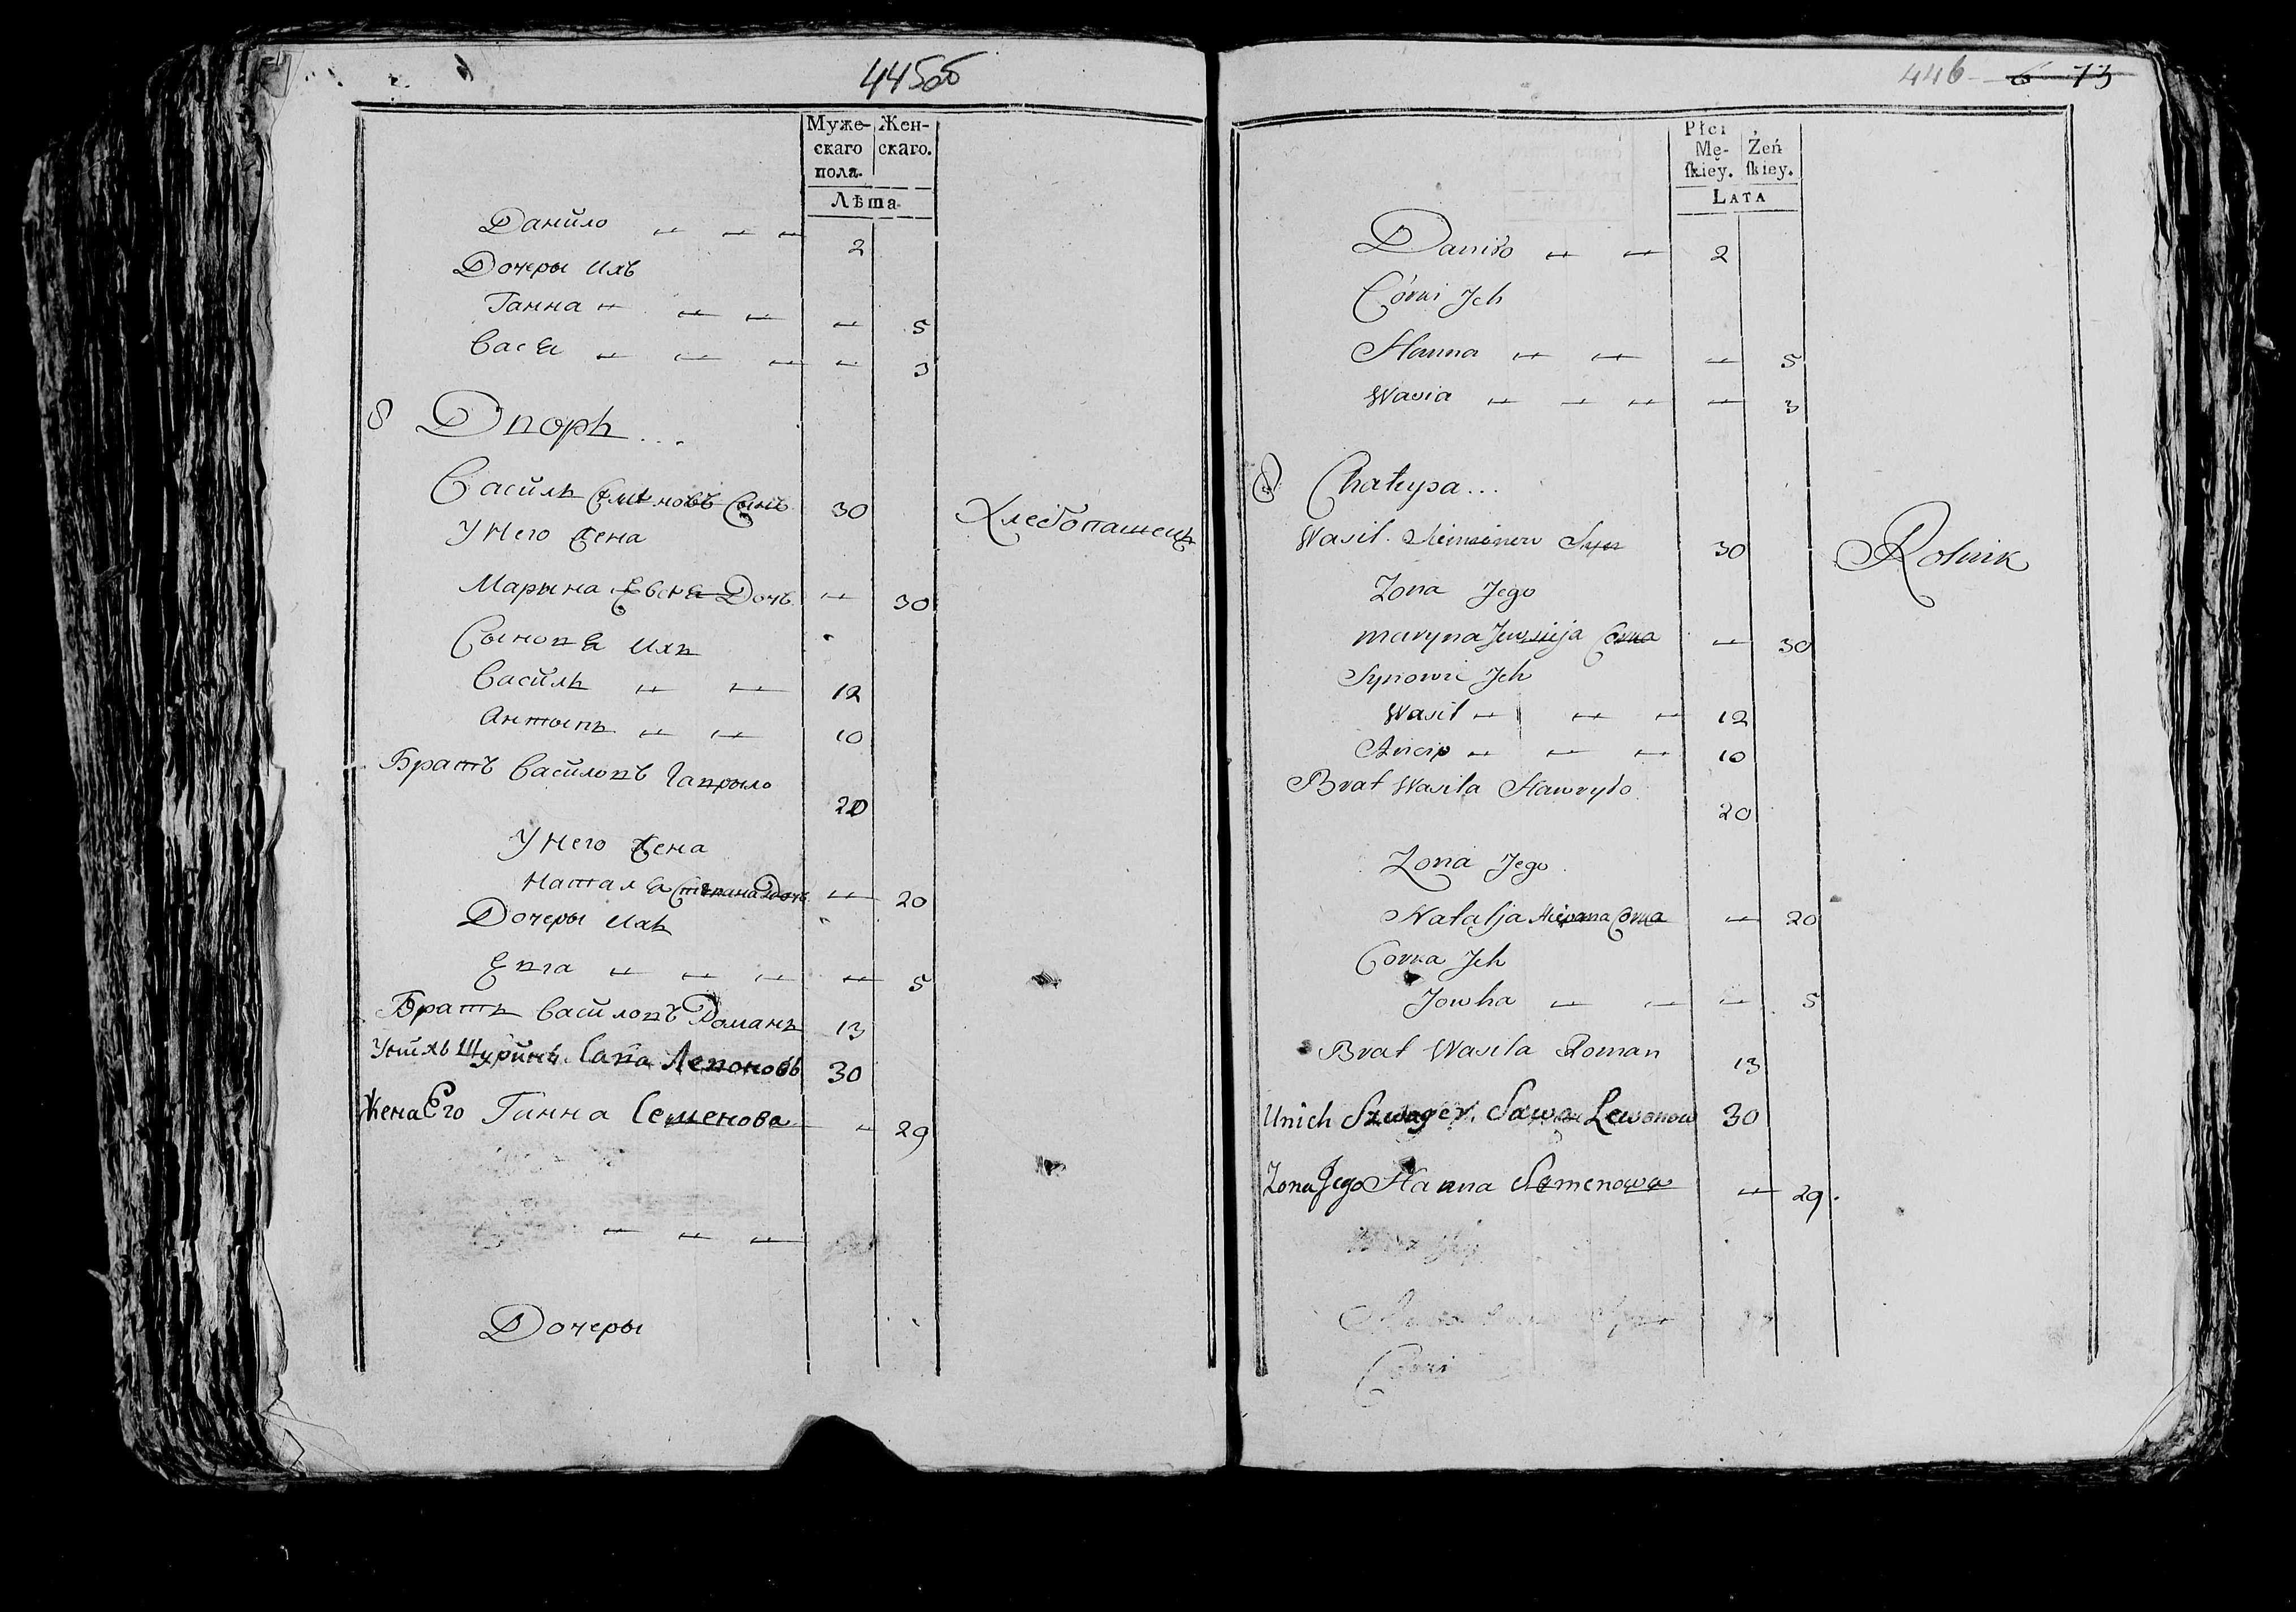 445об
Муже-
скаго
пола.
Жен-
скаго.
Лѣта
Данило 2
Дочеры Ихъ
Ганна 5
Вася 3
8 Дворъ...
Василь Семеновъ Сынъ 30 Хлебопашецъ
У Него Жена
Марына Евсея Дочь 30
Сыновя Ихъ
Василь 12
Антыпъ 10
Братъ Василовъ Гаврыло
20
У Него Жена
Наталя Степана Дочь 20
Дочеры Ихъ
Евга 5
Братъ Василовъ Романъ 13
Унихъ Шуринъ Сава Левоновъ 30
Жена Его Ганна Семенова 29
Дочеры
446 6 73
Płci
Mę-
skiey.
Żeń
skiey.
LATA
Daniło 2
Córki Jch
Hanna 5
Wasia 3
8 Chałupa...
Wasil Simionow Syn 30 Rolnik
Zona Jego
Maryna Jewsieja Corka 30
Synowie Jch
Wasil 12
Ancip 10
Brat Wasila Hawryło
20
Zona Jego
Natalja Stepana Corka 20
Corka Jch
Jowha 5
Brat Wasila Roman 13
Unich Szwager Sawa Lewonow 30
Zona Jego Hanna Semenowa 29
Corki